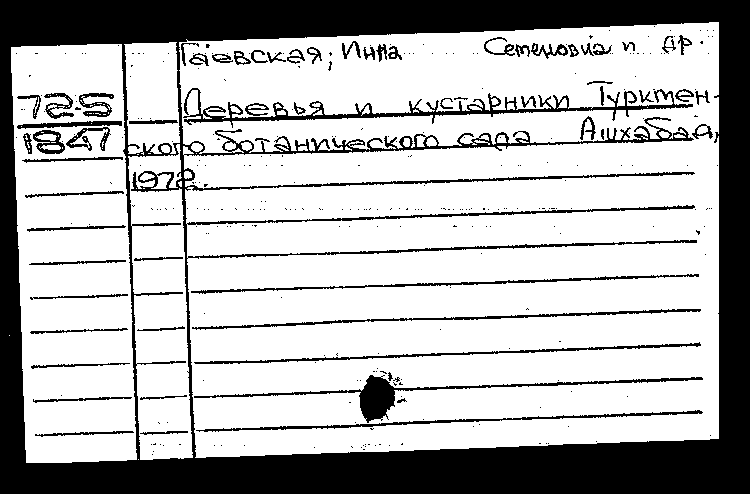 Гаевская, Инна Семеновна и др.
72-5 Деревья и кустарники Туркмен-
1847 ского ботанического сада Ашхабад,
1972.